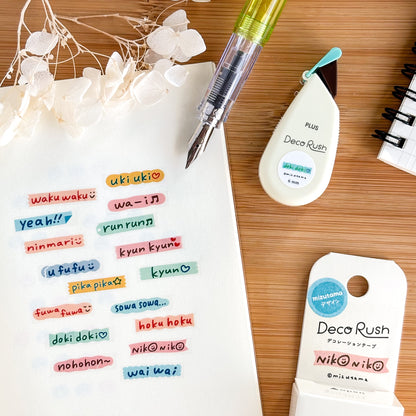 uki uki♡
waku waku
wa-i♫
yeah!!
run run♫
ninmari
kyun kyun♥
ufufufu
kyun♡
pika pika☆
fuwa fuwa
sowa sowa...
hoku hoku
doki doki♡
niko niko
nohohon~
wai wai
PLUS
Deco Rush
doki doki♡
mizutama
6 mm
mizutama
デザイン
Deco Rush
デコレーションテープ
NIKO NIKO
@mizutama